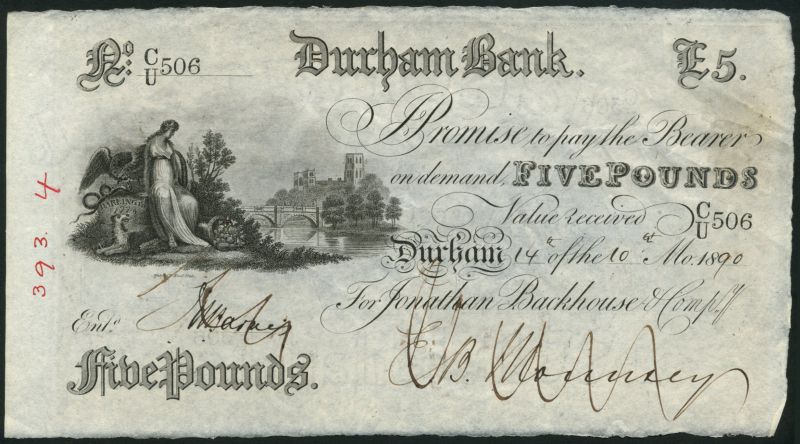 No: C/U 506 Durham Bank. £5.
I Promise to pay the Bearer
on demand, FIVE POUNDS
Value received C/U 506
Durham 14th of the 10th Mo. 1890
For Jonathan Backhouse & Comp.y
Entd.
E. B. Mounsey
Five Pounds.
393.4